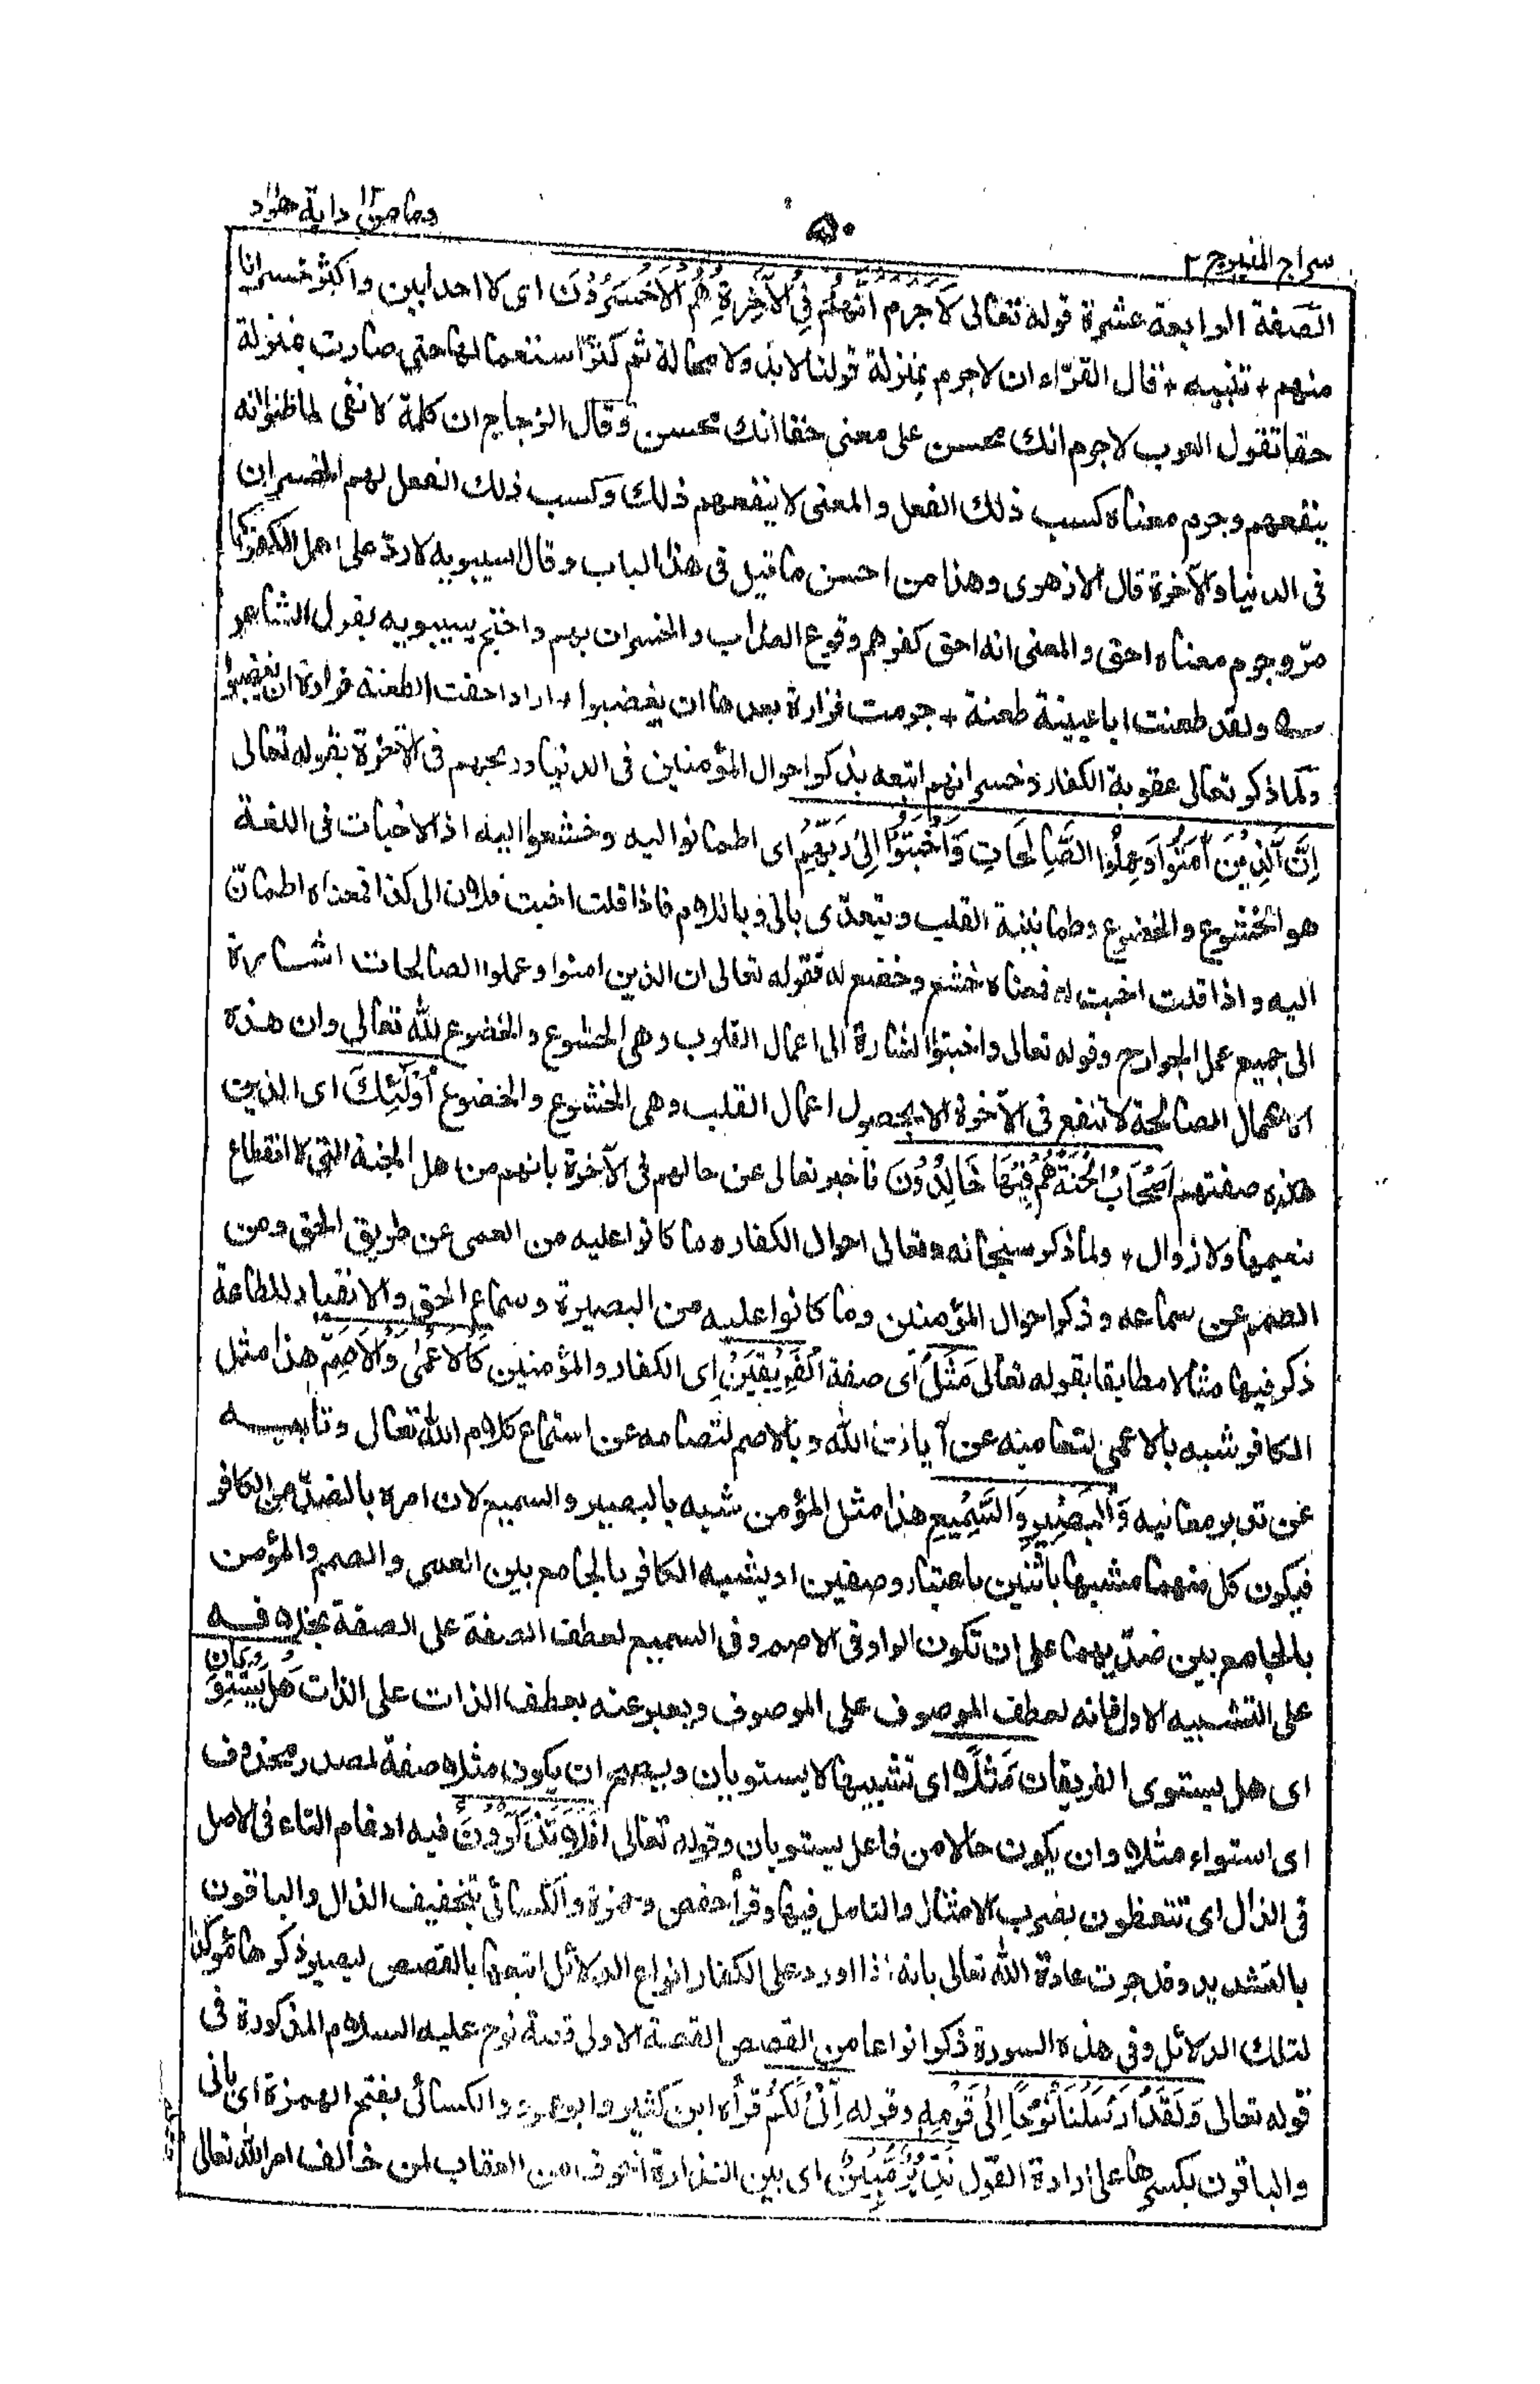 سراج المنير ج ٢
٥٠
وما من دابة ١٢ هود
الصفة الرابعة عشرة قوله تعالى لَاجَرَمَ اَنَّهُمْ فِي الْاٰخِرَةِ هُمُ الْاَخْسَرُوْنَ اى لا احد ابين واكثر خسرانا
منهم + تنبيه + قال الفرّاء ان لاجرم بمنزلة قولنا لابد ولا محالة ثم كثر استعمالها حتى صارت بمنزلة
حقا تقول العرب لاجرم انك محسن على معنى حقا انك محسن وقال الزجاج ان كلمة لا نفى لما ظنوا انه
ينفعهم وجرم معناه كسب ذلك الفعل والمعنى لا ينفعهم ذلك وكسب ذلك الفعل لهم الخسران
فى الدنيا والآخرة قال الازهرى وهذا من احسن ما قيل فى هذا الباب وقال سيبويه لا ردّ على اهل الكفر كما
مرّ وجرم معناه احق والمعنى انه احق كفرهم وقوع العذاب والخسران بهم واحتج سيبويه بقول الشاعر
ولقد طعنت ابا عيينة طعنة + جرمت فزارة بعدها ان يغضبوا + اراد احقت الطعنة فزارة ان يغضبوا
ولما ذكر تعالى عقوبة الكفار وخسرانهم اتبعه بذكر احوال المؤمنين فى الدنيا وربحهم فى الآخرة بقوله تعالى
اِنَّ الَّذِيْنَ اٰمَنُوْا وَعَمِلُوا الصّٰالِحَاتِ وَاَخْبَتُوْا اِلٰى رَبِّهِمْ اى اطمانوا اليه وخشعوا اليه اذ الاخبات فى اللغة
هو الخشوع والخضوع وطمانينة القلب ويتعدّى بالى وباللام فاذا قلت اخبت فلان الى كذا فمعناه اطمانّ
اليه واذا قلت اخبت له فمعناه خشع وخضع له فقوله تعالى ان الذين امنوا وعملوا الصالحات اشارة
الى جميع عمل الجوارح وقوله تعالى واخبتوا اشارة الى اعمال القلوب وهى الخشوع والخضوع لله تعالى وان هذه
الاعمال الصالحة لا تنفع فى الآخرة الا بحصول اعمال القلب وهى الخشوع والخضوع اُولٰٓئِكَ اى الذين
هذه صفتهم اَصْحَابُ الْجَنَّةِ هُمْ فِيْهَا خَالِدُوْنَ فاخبر تعالى عن حالهم فى الآخرة بانهم من اهل الجنة التى لا انقطاع
لنعيمها ولا زوال + ولما ذكر سبحانه وتعالى احوال الكفار وما كانوا عليه من العمى عن طريق الحق ومن
الصمم عن سماعه وذكر احوال المؤمنين وما كانوا عليه من البصيرة وسماع الحق والانقياد للطاعة
ذكر فيها مثالا مطابقا بقوله تعالى مَثَلُ اى صفة الْفَرِيْقَيْنِ اى الكفار والمؤمنين كَالْاَعْمٰى وَالْاَصَمِّ هذا مثل
الكافر شبه بالاعمى لتعاميه عن آيات الله وبالاصم لتصامه عن استماع كلام الله تعالى وتابيه
عن تدبر معانيه وَالْبَصِيْرِ وَالسَّمِيْعِ هذا مثل المؤمن شبه بالبصير والسميع لان امره بالضدّ من الكافر
فيكون كل منهما مشبها باثنين باعتبار وصفين او يشبه الكافر بالجامع بين العمى والصمم والمؤمن
بالجامع بين ضدّيهما على ان تكون الواو فى الاصم وفى السميع لعطف الصفة على الصفة بخلافه
على التشبيه الاول فانه لعطف الموصوف على الموصوف ويعبر عنه بعطف الذات على الذات هَلْ يَسْتَوِيَانِ
اى هل يستوى الفريقان مَثَلًا اى تشبيها لا يستويان ويصح ان يكون مثلا صفة لمصدر محذوف
اى استواء مثلا وان يكون حالا من فاعل يستويان وقوله تعالى اَفَلَا تَذَكَّرُوْنَ فيه ادغام التاء فى الاصل
فى الذال اى تتعظون بضرب الامثال والتامل فيها وقرأ حفص وحمزة والكسائى بتخفيف الذال والباقون
بالتشديد وقد جرت عادة الله تعالى بانه اذا اورد على الكفار انواع الدلائل اتبعها بالقصص ليصير ذكرها مؤكدا
لتلك الدلائل وفى هذه السورة ذكر انواعا من القصص القصة الاولى قصة نوح عليه السلام المذكورة فى
قوله تعالى وَلَقَدْ اَرْسَلْنَا نُوْحًا اِلٰى قَوْمِهٖ وقوله اِنِّىْ لَكُمْ قرأه ابن كثير وابو عمرو والكسائى بفتح الهمزة اى بانى
والباقون بكسرها على ارادة القول نَذِيْرٌ مُّبِيْنٌ اى بين النذارة اخوف من العقاب لمن خالف امر الله تعالى